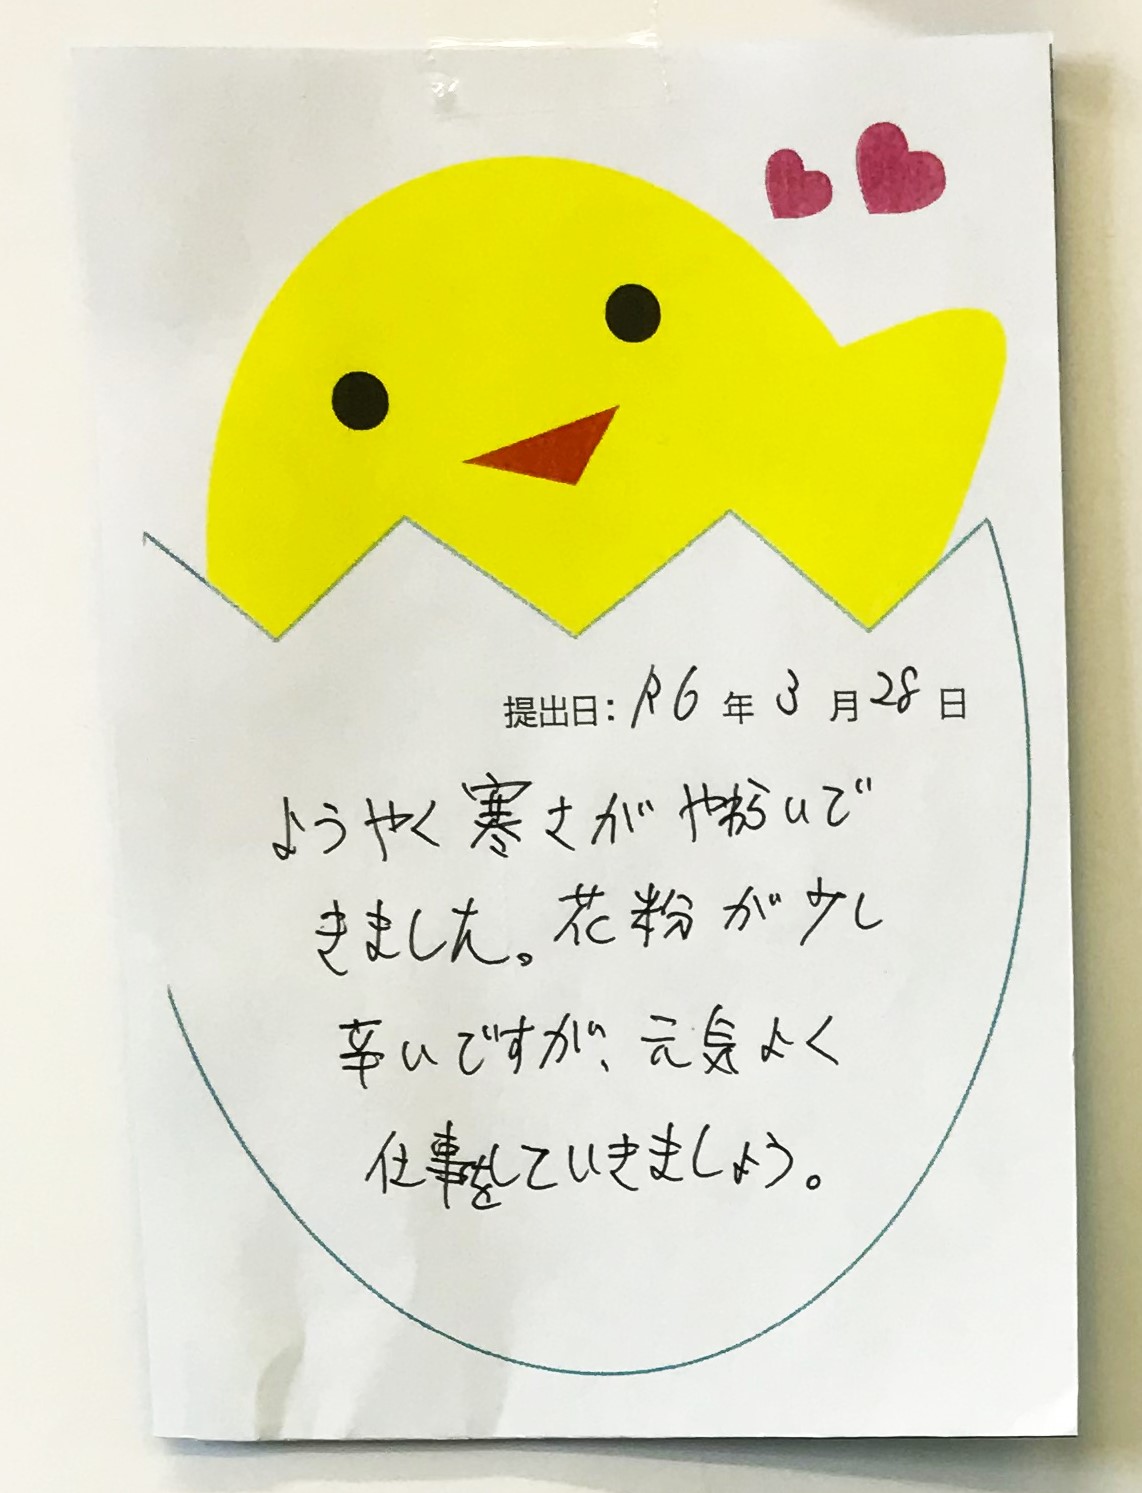 提出日：R6年3月28日
ようやく寒さがやわらいで
きました。花粉が少し
辛いですが、元気よく
仕事をしていきましょう。